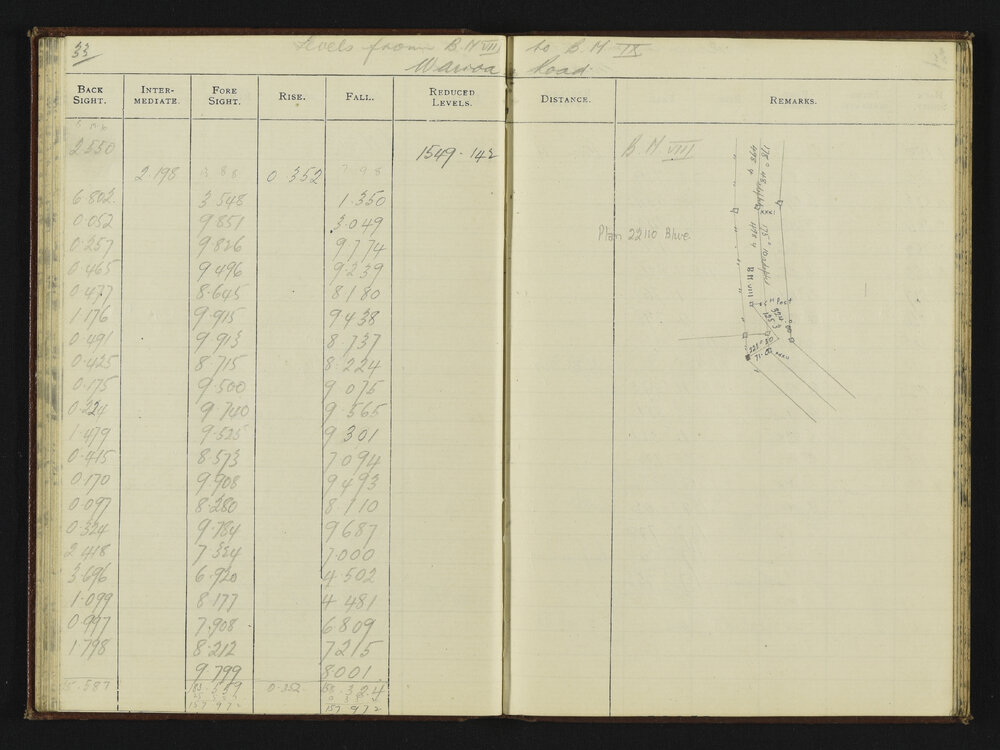 33
Levels from B.M VIII to B.M. IX
Road
BACK SIGHT. INTER-MEDIATE. FORE SIGHT. RISE. FALL. REDUCED LEVELS. DISTANCE. REMARKS.
2.550 1549.142 B.M. VIII
2.198 0.352
6.802 3.548 1.350
0.052 9.851 3.049
0.257 9.826 9.774 Plan 22110 Blue
0.465 9.496 9.239
0.477 8.645 8.180
1.176 9.915 9.438
0.491 9.913 8.737
0.425 8.715 8.224
0.175 9.500 9.075
0.224 9.740 9.565
1.479 9.525 9.301
0.415 8.573 7.094
0.170 9.908 9.493
0.097 8.280 8.110
0.324 9.784 9.687
2.418 7.324 7.000
3.696 6.920 4.502
1.099 8.177 4.481
0.997 7.908 6.809
1.798 8.212 7.215
9.799 8.001
0.352
157.972 157.972
BM VIII